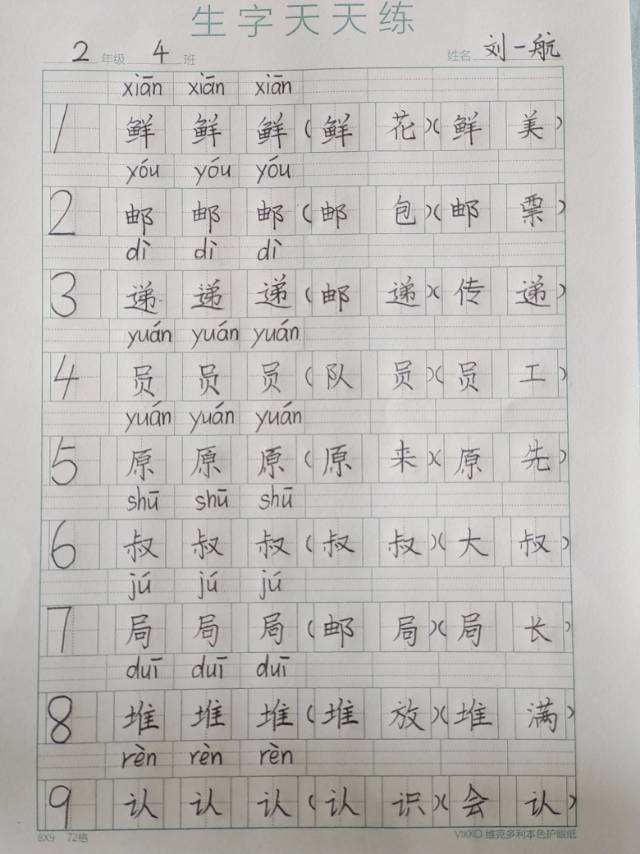 生字天天练
2 年级 4 班 姓名 刘一航
xiān xiān xiān
1 鲜 鲜 鲜(鲜 花)(鲜 美)
yóu yóu yóu
2 邮 邮 邮(邮 包)(邮 票)
dì dì dì
3 递 递 递(邮 递)(传 递)
yuán yuán yuán
4 员 员 员(队 员)(员 工)
yuán yuán yuán
5 原 原 原(原 来)(原 先)
shū shū shū
6 叔 叔 叔(叔 叔)(大 叔)
jú jú jú
7 局 局 局(邮 局)(局 长)
duī duī duī
8 堆 堆 堆(堆 放)(堆 满)
rèn rèn rèn
9 认 认 认(认 识)(会 认)
8X9 72格 VIKKO 维克多利本色护眼纸